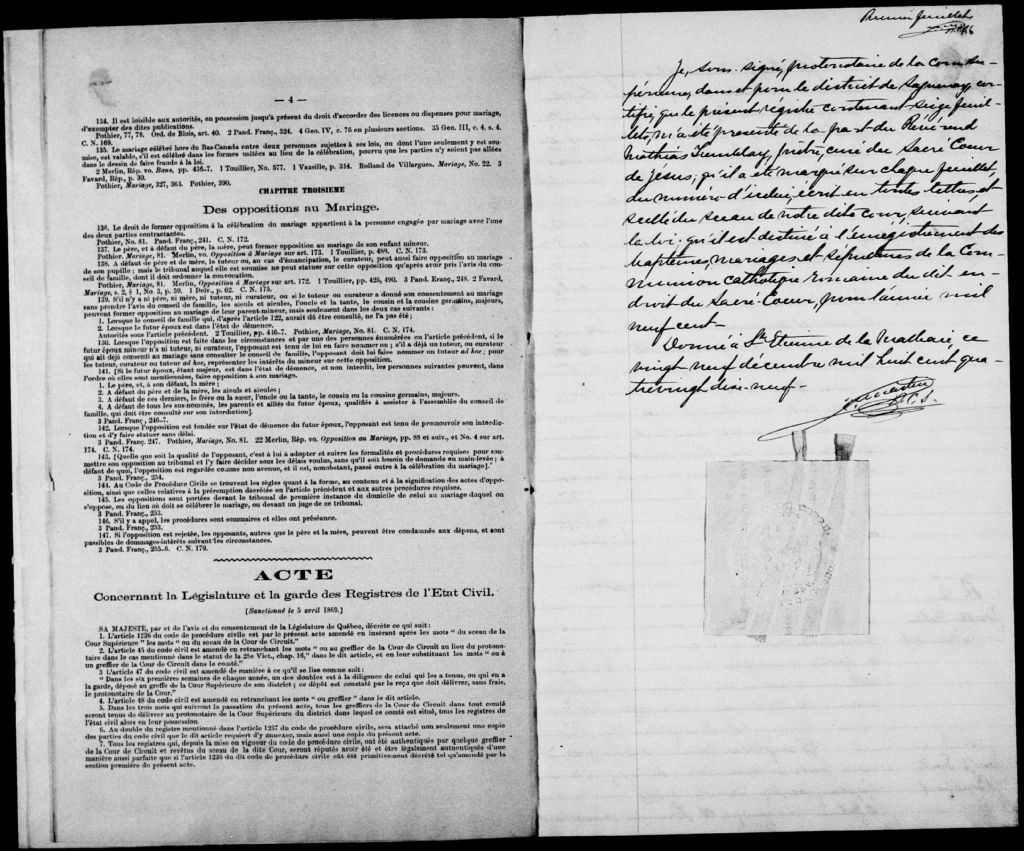 — 4 —
134. Il est loisible aux autorités, en possession jusqu'à présent du droit d'accorder des licences ou dispenses pour mariage,
d'exempter des dites publications.
Pothier, 77, 78. Ord. de Blois, art. 40. 2 Pand. Franç., 324. 4 Geo. IV, c. 76 en plusieurs sections. 35 Geo. III, c. 4, s. 4.
C. N. 169.
135. Le mariage célébré hors du Bas-Canada entre deux personnes sujettes à ses lois, ou dont l'une seulement y est sou-
mise, est valable, s'il est célébré dans les formes usitées au lieu de la célébration, pourvu que les parties n'y soient pas allées
dans le dessin de faire fraude à la loi.
2 Merlin, Rép. vo. Bans, pp. 436-7. 1 Touillier, No. 577. 1 Vazille, p. 314. Rolland de Villargues. Mariage, No. 22. 3
Favard, Rép., p. 30.
Pothier, Mariage, 327, 363. Pothier, 390.
CHAPITRE TROISIEME
Des oppositions au Mariage.
136. Le droit de former opposition à la célébration du mariage appartient à la personne engagée par mariage avec l'une
des deux parties contractantes.
Pothier, No. 81. Pand. Franç., 241. C. N. 172.
137. Le père, et à défaut du père, la mère, peut former opposition au mariage de son enfant mineur.
Pothier, Mariage, 81. Merlin, vo. Opposition à Mariage sur art. 173. 1 Touillier, p. 489. C. N. 173.
138. A défaut de père et de mère, le tuteur ou, au cas d'émancipation, le curateur, peut aussi faire opposition au mariage
de son pupille; mais le tribunal auquel elle est soumise ne peut statuer sur cette opposition qu'après avoir pris l'avis du con-
seil de famille, dont il doit ordonner la convocation.
Pothier, Mariage, 81. Merlin, Opposition à Mariage sur art. 172. 1 Touillier, pp. 425, 490. 3 Pand. Franç., 248. 2 Favard,
Mariage, s. 2, § 1, No. 3, p. 59. 1 Delv., p. 62. C. N. 175.
139. S'il n'y a ni père, ni mère, ni tuteur, ni curateur, ou si le tuteur ou curateur a donné son consentement au mariage
sans prendre l'avis du conseil de famille, les aïeuls et aïeules, l'oncle et la tante, le cousin et la cousine germains, majeurs,
peuvent former opposition au mariage de leur parent mineur, mais seulement dans les deux cas suivants :
1. Lorsque le conseil de famille qui, d'après l'article 122, aurait dû être consulté, ne l'a pas été;
2. Lorsque le futur époux est dans l'état de démence.
Autorités sous l'article précédent. 2 Touillier, pp. 416-7. Pothier, Mariage, No. 81. C. N. 174.
130. Lorsque l'opposition est faite dans les circonstances et par une des personnes énumérées en l'article précédent, si le
futur époux mineur n'a ni tuteur, ni curateur, l'opposant est tenu de lui en faire nommer un; s'il a déjà un tuteur, ou curateur
qui ait déjà consenti au mariage sans consulter le conseil de famille, l'opposant doit lui faire nommer un tuteur ad hoc; pour
les tuteur, curateur ou tuteur ad hoc, représenter les intérêts du mineur sur cette opposition.
141. [Si le futur époux, étant majeur, est dans l'état de démence, et non interdit, les personnes suivantes peuvent, dans
l'ordre où elles sont mentionnées, faire opposition à son mariage.
1. Le père, et, à son défaut, la mère;
2. A défaut du père et de la mère, les aïeuls et aïeules;
3. A défaut de ces derniers, le frère ou la sœur, l'oncle ou la tante, le cousin ou la cousine germains, majeurs.
4. A défaut de tous les sus-nommés, les parents et alliés du futur époux, qualifiés à assister à l'assemblée du conseil de
famille, qui doit être consultée sur son interdiction].
3 Pand. Franç., 246-7.
142. Lorsque l'opposition est fondée sur l'état de démence du futur époux, l'opposant est tenu de promouvoir son interdic-
tion et d'y faire statuer sans délai.
3 Pand. Franç. 247. Pothier, Mariage, No. 81. 22 Merlin, Rép. vo. Opposition au Mariage, pp. 88 et suiv., et No. 4 sur art.
174. C. N. 174.
143. [Quelle que soit la qualité de l'opposant, c'est à lui à adopter et suivre les formalités et procédures requises pour sou-
mettre son opposition au tribunal et l'y faire décider sous les délais voulus, sans qu'il soit besoin de demande en main-levée; à
défaut de quoi, l'opposition est regardée comme non avenue, et il est, nonobstant, passé outre à la célébration du mariage].
3 Pand. Franç., 254.
144. Au Code de Procédure Civile se trouvent les règles quant à la forme, au contenu et à la signification des actes d'oppo-
sition, ainsi que celles relatives à la péremption décrétée en l'article précédent et aux autres procédures requises.
145. Les oppositions sont portées devant le tribunal de première instance du domicile de celui au mariage duquel on
s'oppose, ou du lieu où doit se célébrer le mariage, ou devant un juge de ce tribunal.
3 Pand. Franç., 253.
146. S'il y a appel, les procédures sont sommaires et elles ont préséance.
3 Pand. Franç., 253.
147. Si l'opposition est rejetée, les opposants, autres que le père et la mère, peuvent être condamnés aux dépens, et sont
passibles de dommages-intérêts suivant les circonstances.
3 Pand. Franç., 255-6. C. N. 179.
ACTE
Concernant la Législature et la garde des Registres de l'Etat Civil.
[Sanctionné le 5 avril 1869.]
SA MAJESTÉ, par et de l'avis et du consentement de la Législature de Québec, décrète ce qui suit :
1. L'article 1236 du code de procédure civile est par le présent acte amendé en insérant après les mots " du sceau de la
Cour Supérieure " les mots " ou du sceau de la Cour de Circuit."
2. L'article 45 du code civil est amendé en retranchant les mots " ou au greffier de la Cour de Circuit au lieu du protono-
taire dans le cas mentionné dans le statut de la 25e Vict., chap. 16," dans le dit article, et en leur substituant les mots " ou à
un greffier de la Cour de Circuit dans le comté."
3 L'article 47 du code civil est amendé de manière à ce qu'il se lise comme suit :
" Dans les six premières semaines de chaque année, un des doubles est à la diligence de celui qui les a tenus, ou qui en a
la garde, déposé au greffe de la Cour Supérieure de son district; ce dépôt est constaté par le reçu que doit délivrer, sans frais,
le protonotaire de la Cour."
4. L'article 48 du code civil est amendé en retranchant les mots " ou greffier " dans le dit article.
5. Dans les trois mois qui suivront la passation du présent acte, tous les greffiers de la Cour de Circuit dans tout comté
seront tenus de délivrer au protonotaire de la Cour Supérieure du district dans lequel ce comté est situé, tous les registres de
l'état civil alors en leur possession.
6. Au double du registre mentionné dans l'article 1237 du code de procédure civile, sera attaché non seulement une copie
des parties du code civil que le dit article requiert d'y annexer, mais aussi une copie du présent acte.
7. Tous les registres qui, depuis la mise en vigueur du code de procédure civile, ont été authentiqués par quelque greffier
de la Cour de Circuit et revêtus du sceau de la dite Cour, seront réputés avoir été et être légalement authentiqués d'une
manière aussi parfaite que si l'article 1236 du dit code de procédure civile eût été primitivement décrété tel qu'amendé par la
section première du présent acte.
Premier feuillet
Je, sous signé, protonotaire de la Cour Su-
périeure, dans et pour le district de Saguenay, cer-
tifie, que le présent régistre contenant seize feuil-
lets, m'a été présenté de la part du Révérend
Mathias Tremblay, prêtre, curé du Sacré Coeur
de Jesus; qu'il a été marqué sur chaque feuillet,
du numéro d'icelui, écrit en toutes lettres, et
scellé du sceau de notre dite cour, suivant
la loi: qu'il est destiné à l'enregistrement des
baptêmes, mariages et sépultures de la Com-
munion Catholique Romaine du dit en-
droit du Sacré Coeur, pour l'année mil
neuf cent.
Donné à St. Etienne de la Malbaie, ce
vingt neuf décembre mil huit cent qua-
trevingt dix-neuf.
P.C.S.